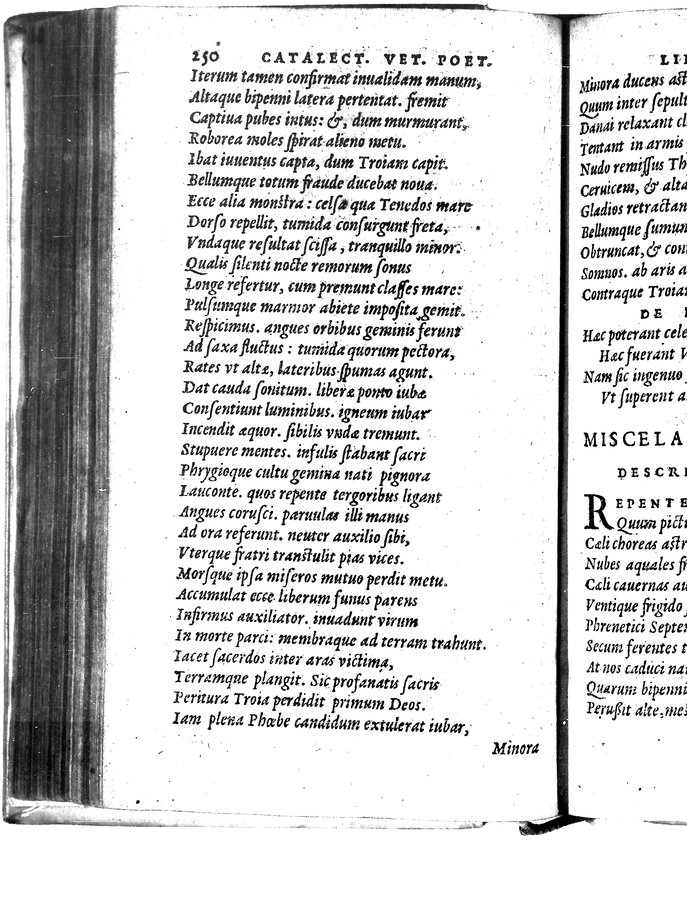 250 CATALECT. VET. POET.
Iterum tamen confirmat inualidam manum,
Altaque bipenni latera pertentat. fremit
Captiua pubes intus: &, dum murmurant,
Roborea moles ſpirat alieno metu.
Ibat iuuentus capta, dum Troiam capit.
Bellumque totum fraude ducebat noua.
Ecce alia monſtra: celſa qua Tenedos mare
Dorſo repellit, tumida conſurgunt freta,
Vndaque reſultat ſciſſa, tranquillo minor.
Qualis ſilenti nocte remorum ſonus
Longe refertur, cum premunt claſſes mare:
Pulſumque marmor abiete impoſita gemit.
Reſpicimus. angues orbibus geminis ferunt
Ad ſaxa fluctus: tumida quorum pectora,
Rates vt altæ, lateribus ſpumas agunt.
Dat cauda ſonitum. liberæ ponto iubæ
Conſentiunt luminibus. igneum iubar
Incendit æquor. ſibilis vndæ tremunt.
Stupuere mentes. infulis ſtabant ſacri
Phrygioque cultu gemina nati pignora
Lauconte. quos repente tergoribus ligant
Angues coruſci. paruulas illi manus
Ad ora referunt. neuter auxilio ſibi,
Vterque fratri tranſtulit pias vices.
Morſque ipſa miſeros mutuo perdit metu.
Accumulat ecce liberum funus parens
Infirmus auxiliator. inuadunt virum
In morte parci: membraque ad terram trahunt.
Iacet ſacerdos inter aras victima,
Terramque plangit. Sic profanatis ſacris
Peritura Troia perdidit primum Deos.
Iam plena Phœbe candidum extulerat iubar,
Minora
LI
Minora ducens aſt
Quum inter ſepult
Danai relaxant cl
Tentant in armis
Nudo remiſſus Th
Ceruicem, & alta
Gladios retractan
Bellumque ſumun
Obtruncat, & con
Somnos. ab aris a
Contraque Troia
DE
Hæc poterant cele
Hæc fuerant V
Nam ſic ingenuo
Vt ſuperent a
MISCELA
DESCRI
REPENTE
Quum pict
Cæli choreas aſtr
Nubes aquales fr
Cæli cauernas au
Ventique frigido
Phrenetici Septe
Secum ferentes t
At nos caduci na
Quarum bipenni
Perußit alte, me